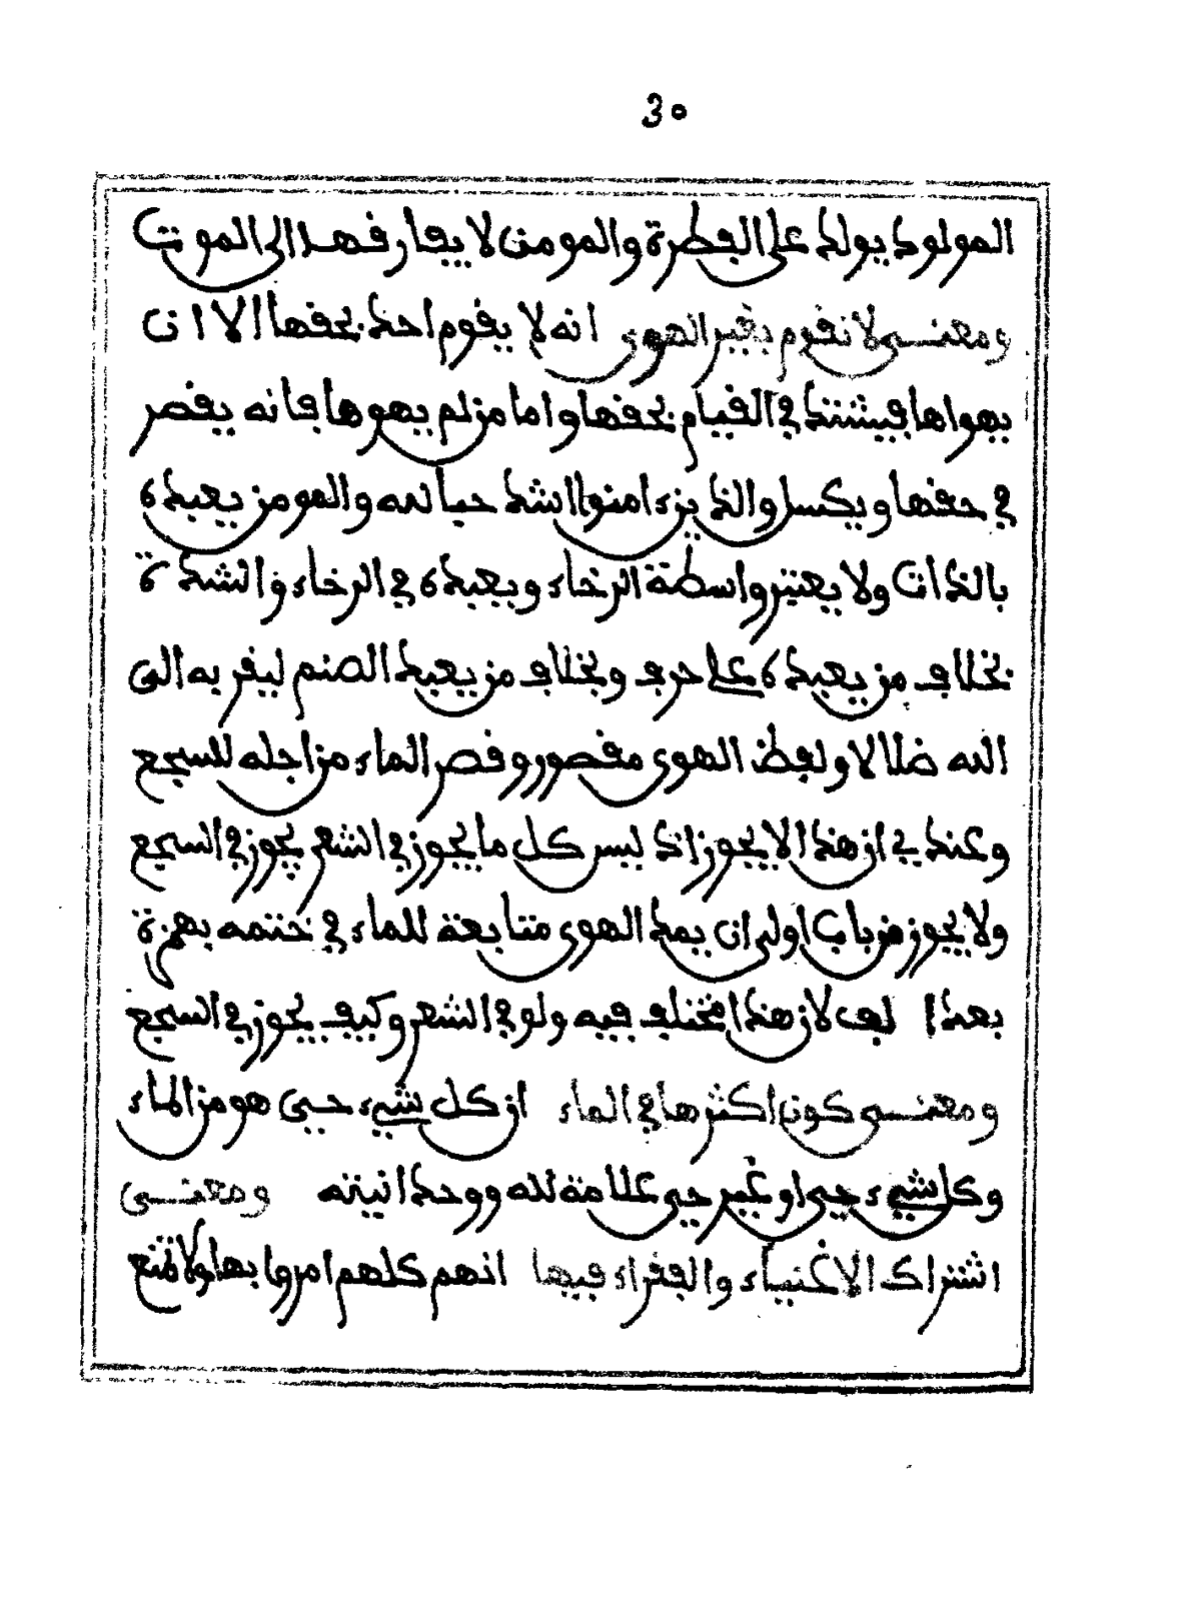 30
المولود يولد على الفطرة والمومن لا يفارفها الى الموت
ومعنى لا تقوم بغير الهوى انه لا يقوم احد بحقها الا ان
يهواها فيشتد في القيام بحقها واما من لم يهوها فانه يقصر
في حقها ويكسل والذين ءامنوا اشد حبا لله والمومن يعبده
بالذات ولا يعتبر واسطة الرخاء ويعبده في الرخاء والشدة
بخلاف من يعبده على حرف وبخلاف من يعبد الصنم ليقربه الى
الله ضلالا ولفظ الهوى مقصور وقصر الماء من اجله للسجع
وعندي ان هذا لا يجوز اذ ليس كل ما يجوز في الشعر يجوز في السجع
ولا يجوز من باب اولى ان يمد الهوى متابعة للماء في ختمه بهمزة
بعد الف لان هذا مختلف فيه ولو في الشعر وكيف يجوز في السجع
ومعنى كون اكثرها في الماء ان كل شيء حيي هو من الماء
وكل شيء حيي او غير حيي علامة لله ووحدانيته ومعنى
اشتراك الاغنياء والفقراء فيها انهم كلهم امروا بها ولا تمنع